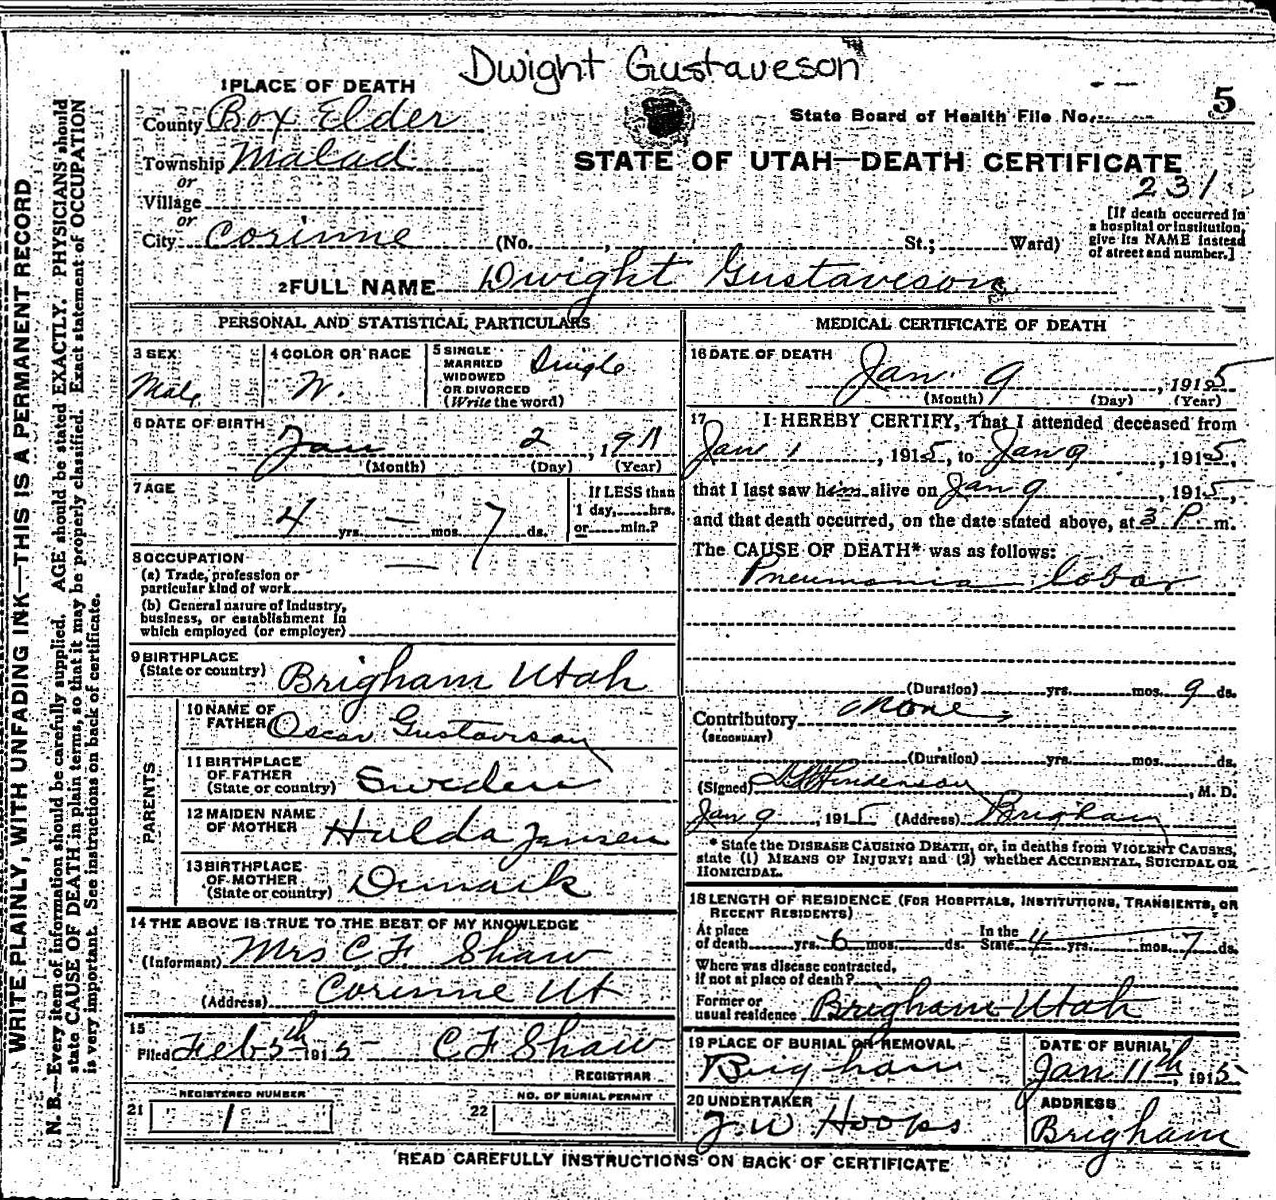 Dwight Gustaveson
1 PLACE OF DEATH
County Box Elder
State Board of Health File No. 5
Township Malad
STATE OF UTAH—DEATH CERTIFICATE
or
Village
231
or
City Corinne (No. , St.; Ward)
[If death occurred in
a hospital or institution,
give its NAME instead
of street and number.]
2 FULL NAME Dwight Gustaveson
PERSONAL AND STATISTICAL PARTICULARS
3 SEX
Male
4 COLOR OR RACE
W.
5 SINGLE
MARRIED
WIDOWED
OR DIVORCED
(Write the word)
Single
6 DATE OF BIRTH
Jan 2, 1911
(Month) (Day) (Year)
7 AGE
4 yrs. — mos. 7 ds.
If LESS than
1 day, hrs.
or min.?
8 OCCUPATION
(a) Trade, profession or
particular kind of work —
(b) General nature of industry,
business, or establishment in
which employed (or employer)
9 BIRTHPLACE
(State or country) Brigham Utah
PARENTS
10 NAME OF
FATHER Oscar Gustaveson
11 BIRTHPLACE
OF FATHER
(State or country) Sweden
12 MAIDEN NAME
OF MOTHER Hulda Jensen
13 BIRTHPLACE
OF MOTHER
(State or country) Denmark
14 THE ABOVE IS TRUE TO THE BEST OF MY KNOWLEDGE
(Informant) Mrs C F Shaw
(Address) Corinne Ut
15
Filed Feb 5th 1915 C F Shaw
REGISTRAR
REGISTERED NUMBER
21 1
NO. OF BURIAL PERMIT
22
MEDICAL CERTIFICATE OF DEATH
16 DATE OF DEATH
Jan. 9, 1915
(Month) (Day) (Year)
17 I HEREBY CERTIFY, That I attended deceased from
Jan 1, 1915, to Jan 9, 1915,
that I last saw him alive on Jan 9, 1915,
and that death occurred, on the date stated above, at 3 P. m.
The CAUSE OF DEATH* was as follows:
Pneumonia lobar
(Duration) yrs. mos. 9 ds.
Contributory None
(SECONDARY)
(Duration) yrs. mos. ds.
(Signed) , M. D.
Jan 9, 1915 (Address) Brigham
* State the DISEASE CAUSING DEATH, or, in deaths from VIOLENT CAUSES,
state (1) MEANS OF INJURY; and (2) whether ACCIDENTAL, SUICIDAL OR
HOMICIDAL.
18 LENGTH OF RESIDENCE (FOR HOSPITALS, INSTITUTIONS, TRANSIENTS, OR
RECENT RESIDENTS)
At place
of death yrs. 6 mos. ds. In the
State 4 yrs. mos. 7 ds.
Where was disease contracted,
if not at place of death?
Former or
usual residence Brigham Utah
19 PLACE OF BURIAL OR REMOVAL
Brigham
DATE OF BURIAL
Jan 11th, 1915
20 UNDERTAKER
J W Hoops
ADDRESS
Brigham
READ CAREFULLY INSTRUCTIONS ON BACK OF CERTIFICATE
WRITE PLAINLY, WITH UNFADING INK—THIS IS A PERMANENT RECORD
N. B.—Every item of information should be carefully supplied. AGE should be stated EXACTLY. PHYSICIANS should
state CAUSE OF DEATH in plain terms, so that it may be properly classified. Exact statement of OCCUPATION
is very important. See instructions on back of certificate.